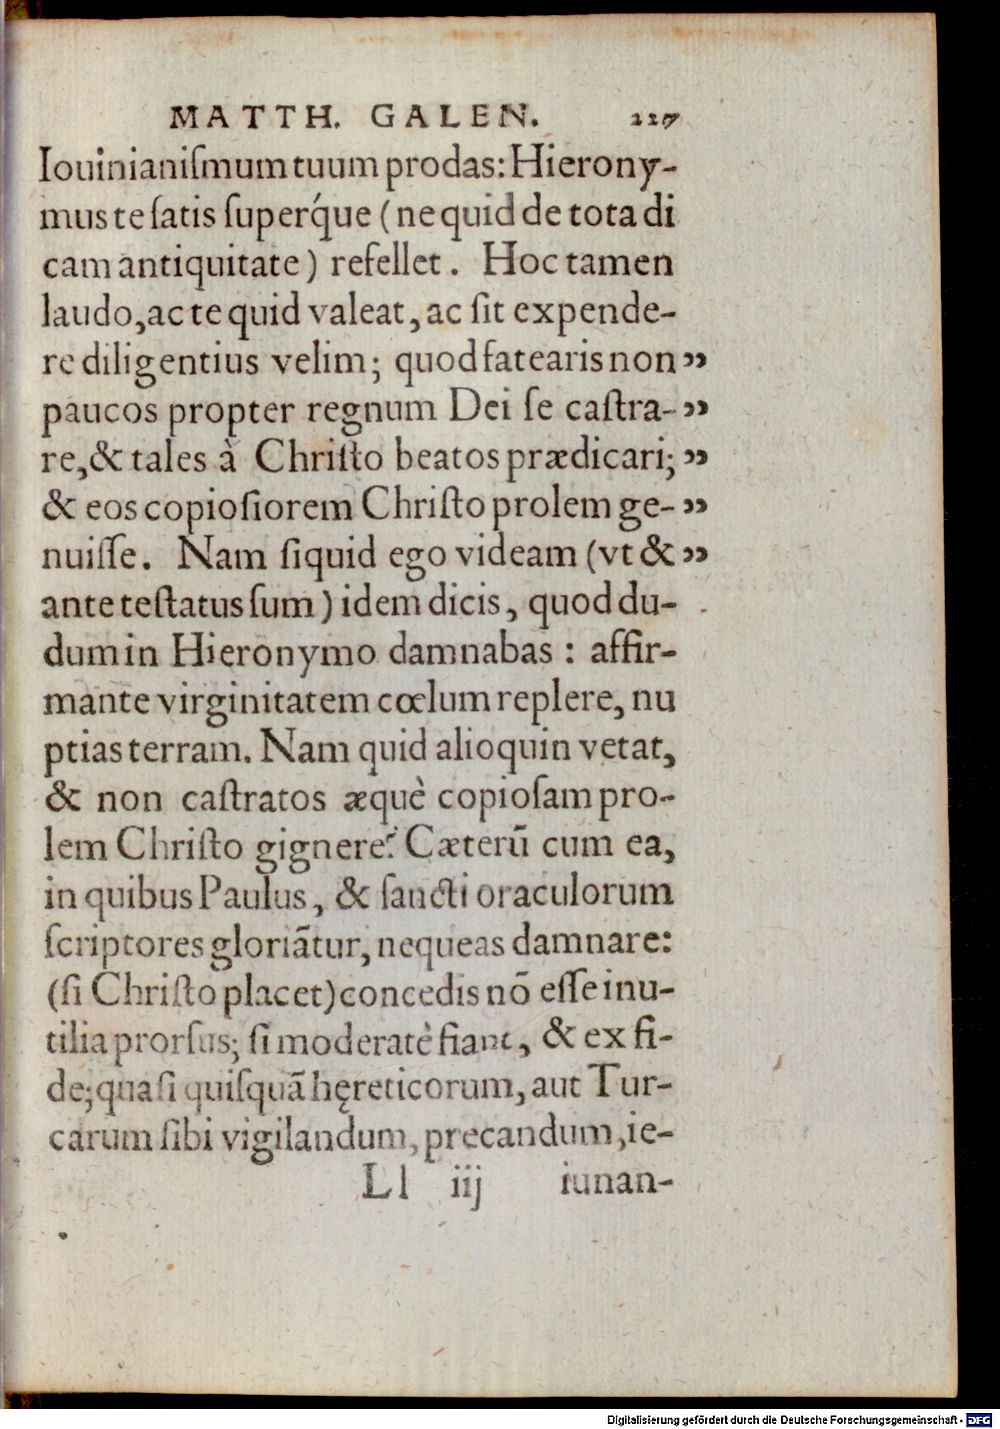 MATTH. GALEN. 227
Iouinianiſmum tuum prodas: Hierony-
mus te ſatis ſuperq́ue (ne quid de tota di
cam antiquitate) refellet. Hoc tamen
laudo, ac te quid valeat, ac ſit expende-
re diligentius velim; quod fatearis non ”
paucos propter regnum Dei ſe caſtra- ”
re, & tales à Chriſto beatos prædicari; ”
& eos copioſiorem Chriſto prolem ge- ”
nuiſſe. Nam ſiquid ego videam (vt & ”
ante teſtatus ſum) idem dicis, quod du-
dum in Hieronymo damnabas : affir-
mante virginitatem cœlum replere, nu
ptias terram. Nam quid alioquin vetat,
& non caſtratos æquè copioſam pro-
lem Chriſto gignere? Cæterũ cum ea,
in quibus Paulus, & ſancti oraculorum
ſcriptores gloriãtur, nequeas damnare:
(ſi Chriſto placet) concedis nõ eſſe inu-
tilia prorſus; ſi moderatè fiant, & ex fi-
de; quaſi quiſquã hęreticorum, aut Tur-
carum ſibi vigilandum, precandum, ie-
Ll iij iunan-
Digitalisierung gefördert durch die Deutsche Forschungsgemeinschaft - DFG